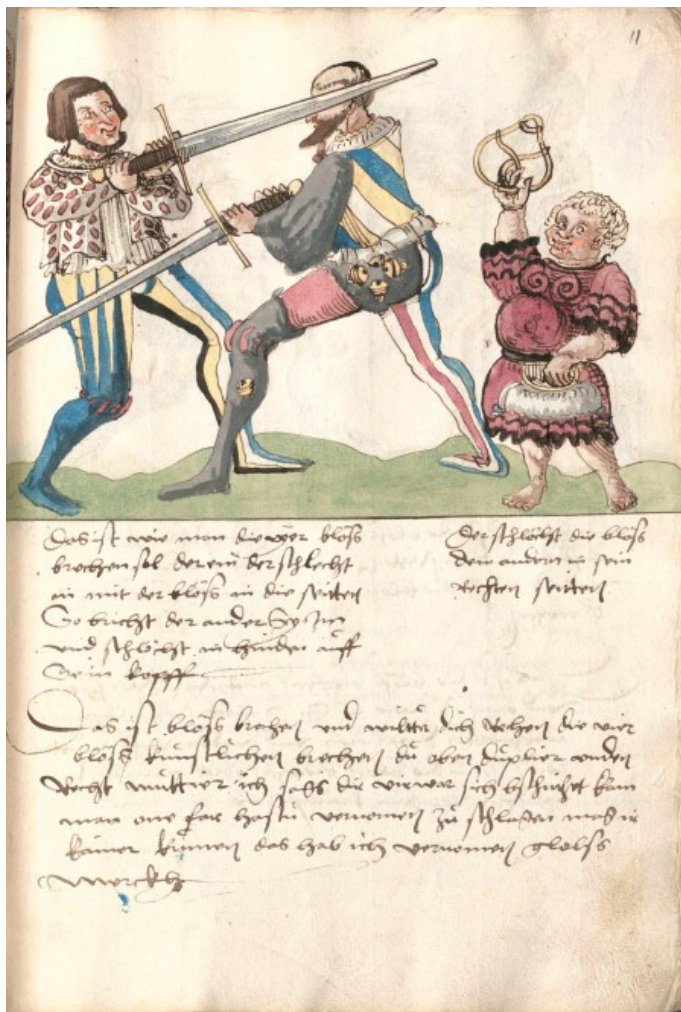 11
Das ist wie man die vyer bloss
brechen sol der ein der schlecht
in mit der bloss in die seitten
So bricht der ander
und schlöchst in hinden auff
Sein kopff
Der schlöchst die bloss
dem andern in sein
Rechten seitten
Das ist bloss brechen und wiltu dich Rechen die vier
bloss kunstlichen brechen du oben duplier unden
Recht muttier ich sags dir sich kain
man one far hastu vernomen zu schlagen mag er
kainer das hab ich vernomen gloss
Merckh